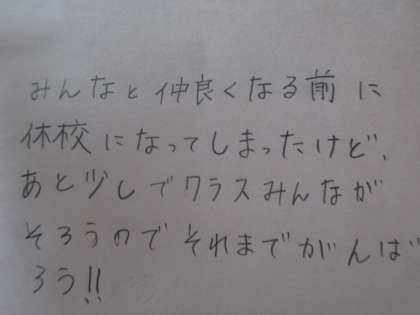 みんなと仲良くなる前に
休校になってしまったけど、
あと少しでクラスみんなが
そろうのでそれまでがんば
ろう!!